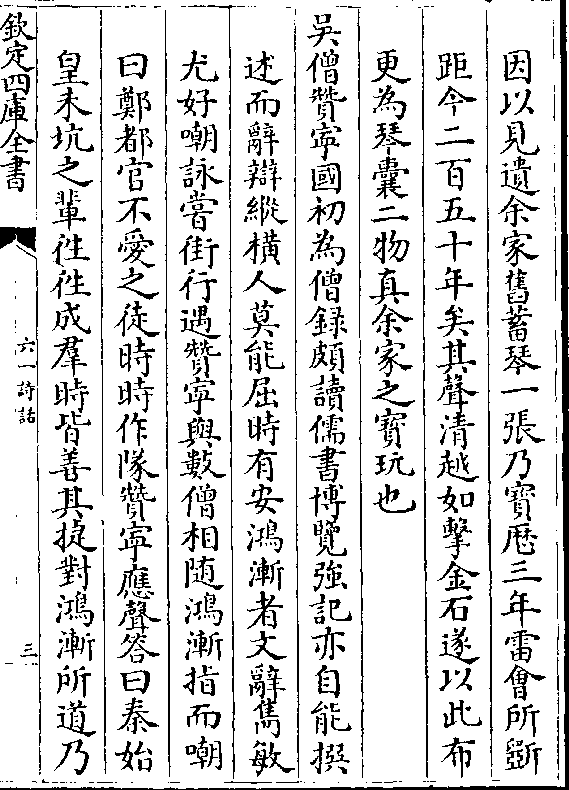 因以見遺余家舊蓄琴一張乃寶厯三年雷會所斵
距今二百五十年矣其聲清越如擊金石遂以此布
更為琴囊二物真余家之寶玩也
吳僧贊寧國初為僧録頗讀儒書博覽強記亦自能撰
述而辭辯縱橫人莫能屈時有安鴻漸者文辭雋敏
尤好嘲詠嘗街行遇贊寧與數僧相隨鴻漸指而嘲
曰鄭都官不愛之徒時時作隊贊寧應聲答曰秦始
皇未坑之輩往往成羣時皆善其捷對鴻漸所道乃
欽定四庫全書
六一詩話
三